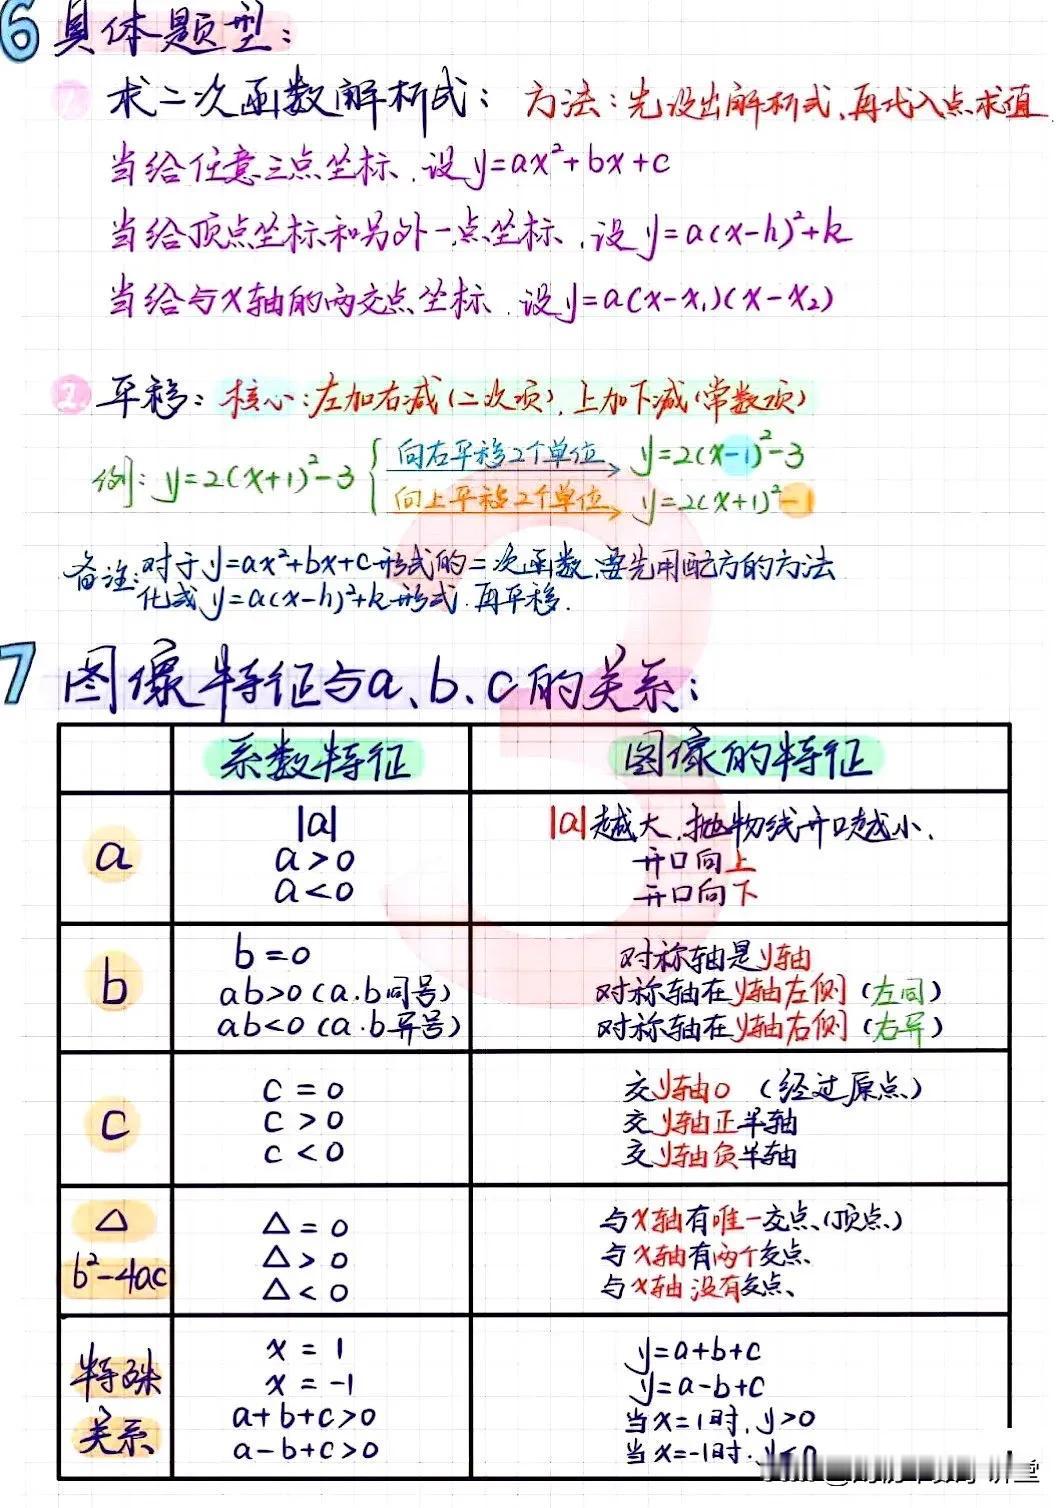 6 具体题型:
1 求二次函数解析式: 方法:先设出解析式,再代入点求值
当给任意三点坐标,设y=ax²+bx+c
当给顶点坐标和另外一点坐标,设y=a(x-h)²+k
当给与x轴的两交点坐标,设y=a(x-x₁)(x-x₂)
2 平移: 核心:左加右减(二次项),上加下减(常数项)
例:y=2(x+1)²-3 { 向右平移2个单位 y=2(x-1)²-3
向上平移2个单位 y=2(x+1)²-1
备注:对于y=ax²+bx+c形式的二次函数,要先用配方的方法
化成y=a(x-h)²+k形式,再平移.
7 图像特征与a、b、c的关系:
系数特征 图像的特征
a |a| |a|越大,抛物线开口越小.
a>0 开口向上
a<0 开口向下
b b=0 对称轴是y轴
ab>0(a.b同号) 对称轴在y轴左侧(左同)
ab<0(a.b异号) 对称轴在y轴右侧(右异)
c c=0 交y轴0 (经过原点)
c>0 交y轴正半轴
c<0 交y轴负半轴
△ b²-4ac △=0 与x轴有唯一交点(顶点)
△>0 与x轴有两个交点
△<0 与x轴没有交点
特殊关系 x=1 y=a+b+c
x=-1 y=a-b+c
a+b+c>0 当x=1时,y>0
a-b+c>0 当x=-1时,y
讲堂